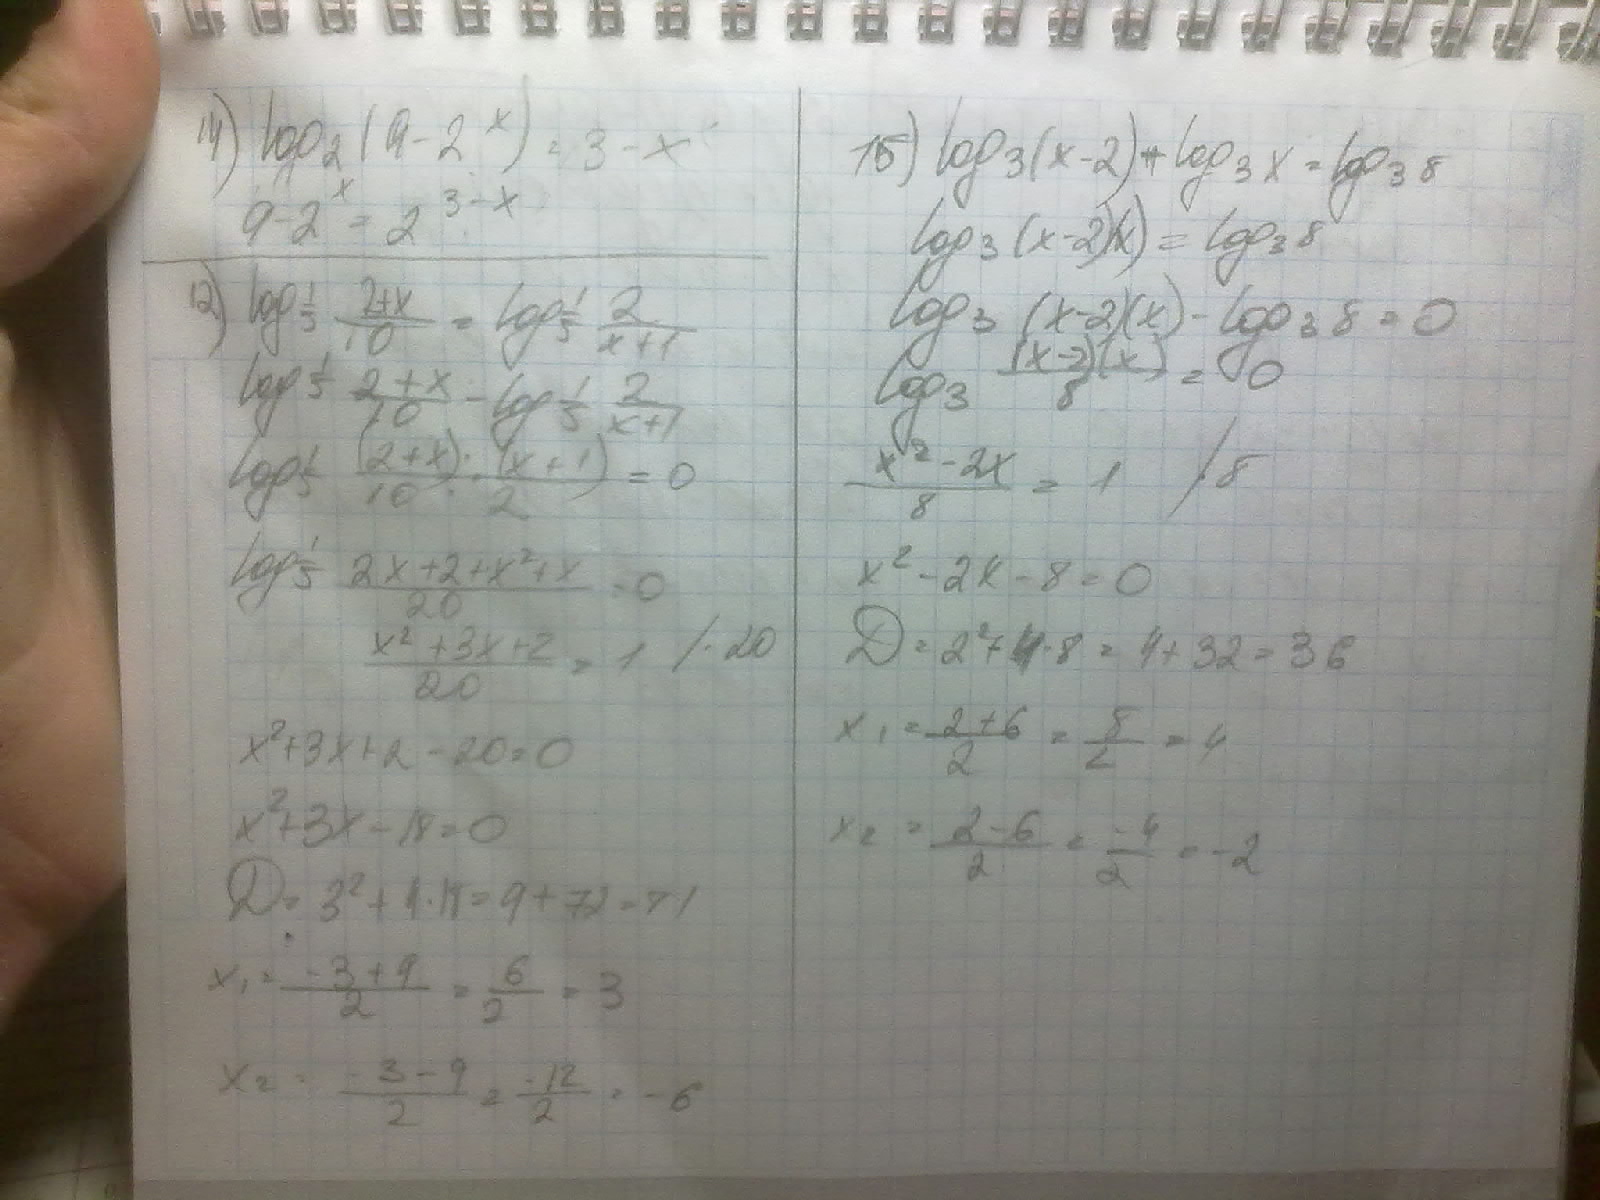 14) log₂(9-2ˣ) = 3-x
9-2ˣ = 2³⁻ˣ
12) log 1/5 (2+x)/10 = log 1/5 2/(x+1)
log 1/5 (2+x)/10 - log 1/5 2/(x+1)
log 1/5 (2+x)/10 · (x+1)/2 = 0
log 1/5 (2x+2+x²+x)/20 = 0
(x²+3x+2)/20 = 1 /·20
x²+3x+2-20=0
x²+3x-18=0
D = 3²+4·18=9+72=81
x₁ = (-3+9)/2 = 6/2 = 3
x₂ = (-3-9)/2 = -12/2 = -6
15) log₃(x-2)+log₃x=log₃8
log₃(x-2)(x) = log₃8
log₃ (x-2)(x) - log₃8 = 0
log₃ (x-2)(x)/8 = 0
(x²-2x)/8 = 1 /·8
x²-2x-8=0
D = 2²+4·8 = 4+32=36
x₁ = (2+6)/2 = 8/2 = 4
x₂ = (2-6)/2 = -4/2 = -2